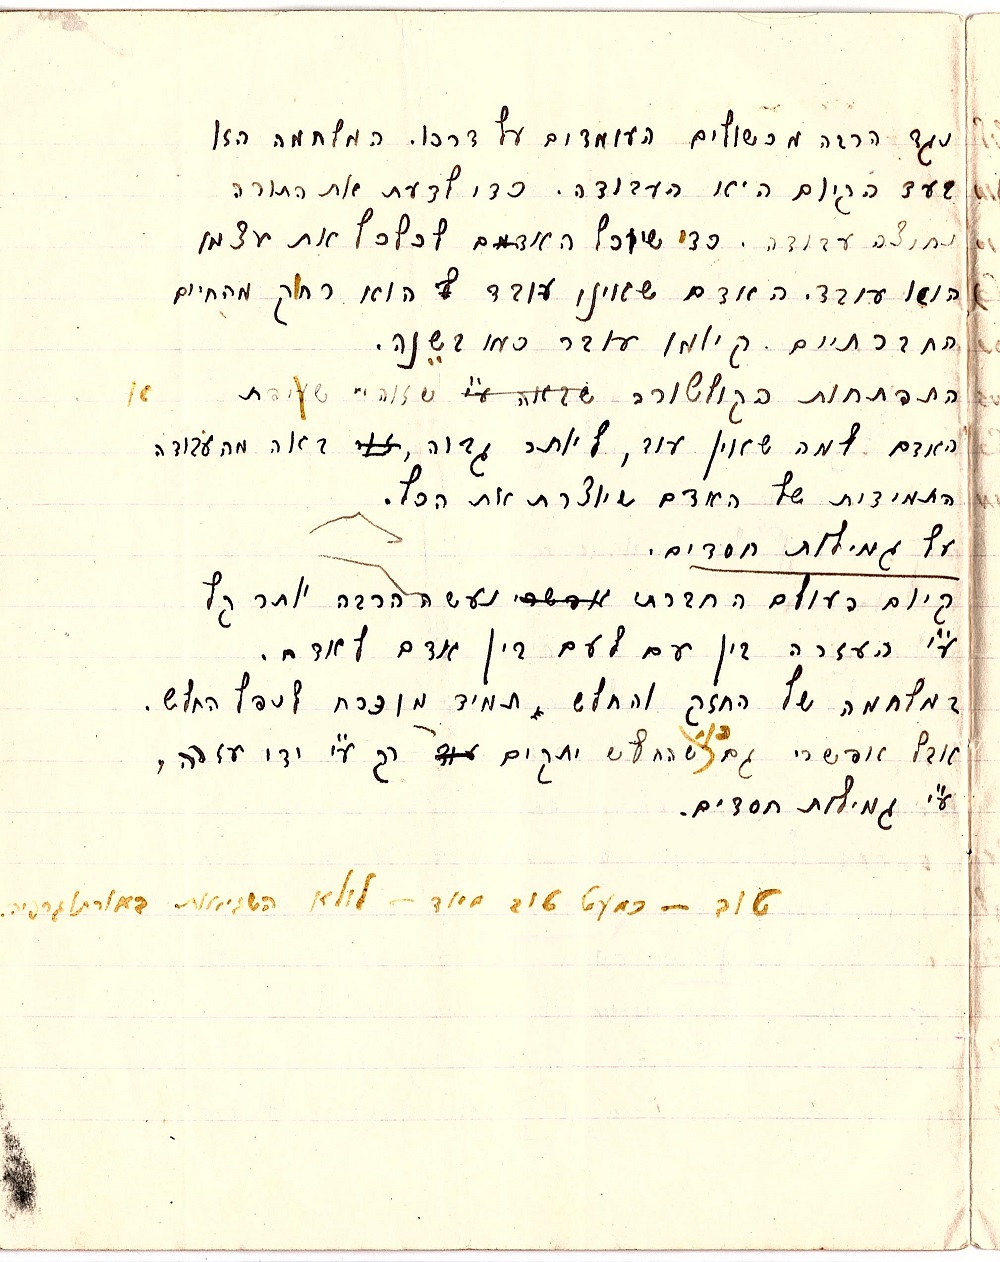 נגד הרבה מכשולים העומדים על דרכו. המלחמה הזו
בעד הקיום היא העבודה. כדי לדעת את התורה
נחוצה עבודה. כדי שיוכל האדם לכלכל את עצמו
הוא עובד. האדם שאינו עובד הוא רחוק מהחיים
החברתיים. קיומו עובר כמו בשנה.
התפתחות הקולטורה שבאה ע״י שמביאה את
האדם למה שאין עוד, ליותר גבוה, באה מהעבודה
התמידית של האדם שיוצרת את הכל.
על גמילות חסדים.
קיום העולם החברתי אפשרי נעשה הרבה יותר קל
ע״י העזרה בין עם לעם בין אדם לאדם.
במלחמה של החזק והחלש תמיד מוכרח לנפל החלש.
אבל אפשרי גם כן שהחלש יתקים עוד רק ע״י ידי עזרה,
ע״י גמילות חסדים.
טוב — כמעט טוב מאוד — לולא השגיאות באורתוגרפיה.